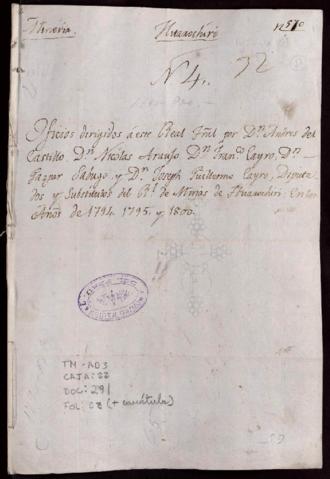 Mineria. Huarochirí nº 510
Nº 4. 32
Oficios dirigidos á este Real Tñal por Dn. Andres del
Castillo Dn. Nicolas Araujo Dn. Franco. Cayro, Dn.
Gaspar Sabugo, y Dn. Joseph Guillermo Cayro, Diputa
dos y Substitutos del Rl. de Minas de Huarochirí: En los
Años de 1794. 1795. y 1800.
TM-AD3
CAJA: 22
DOC: 291
FOL: 62 (+ carátula)